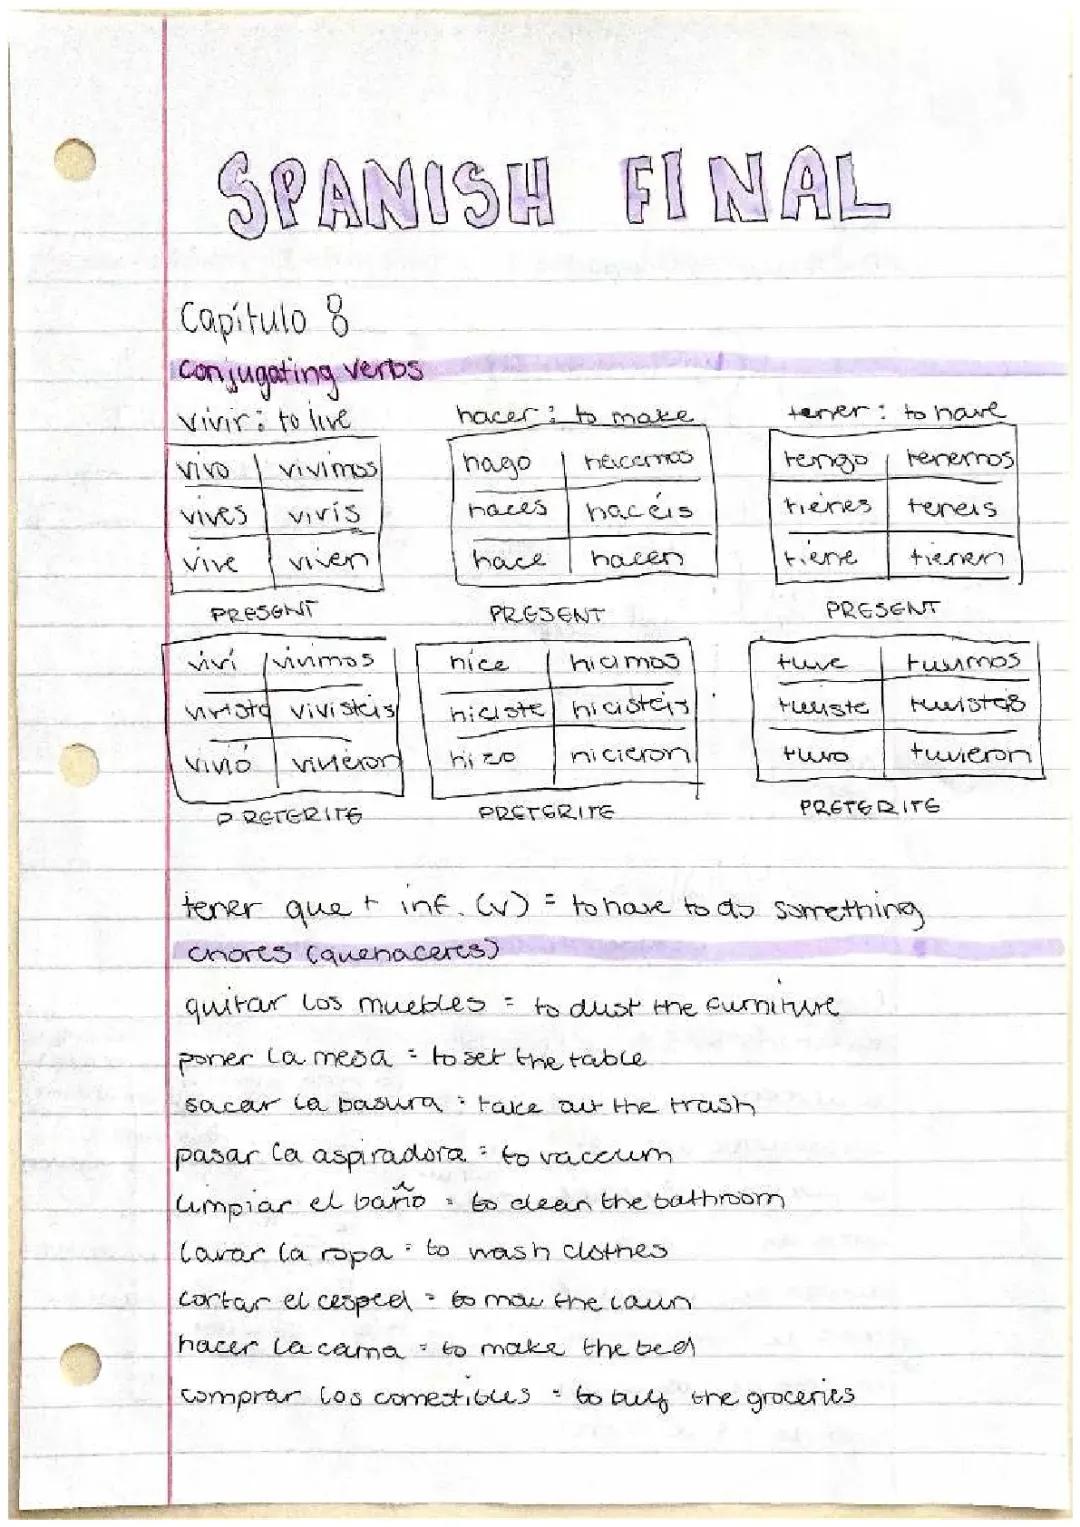 SPANISH FINAL
Capítulo 8
conjugating verbs
vivir: to live hacer: to make tener: to have
vivo vivimos hago hacemos tengo tenemos
vives vivís haces hacéis tienes teneis
vive viven hace hacen tiene tienen
PRESENT PRESENT PRESENT
viví vivimos hice hicimos tuve tuvimos
viviste vivisteis hiciste hicisteis tuviste tuvisteis
vivió vivieron hizo hicieron tuvo tuvieron
PRETERITE PRETERITE PRETERITE
tener que + inf. (v) = to have to do something
chores (quehaceres)
quitar los muebles = to dust the furniture
poner la mesa = to set the table
sacar la basura = take out the trash
pasar la aspiradora = to vaccum
limpiar el baño = to clean the bathroom
lavar la ropa = to wash clothes
cortar el cesped = to mow the lawn
hacer la cama = to make the bed
comprar los comestibles = to buy the groceries